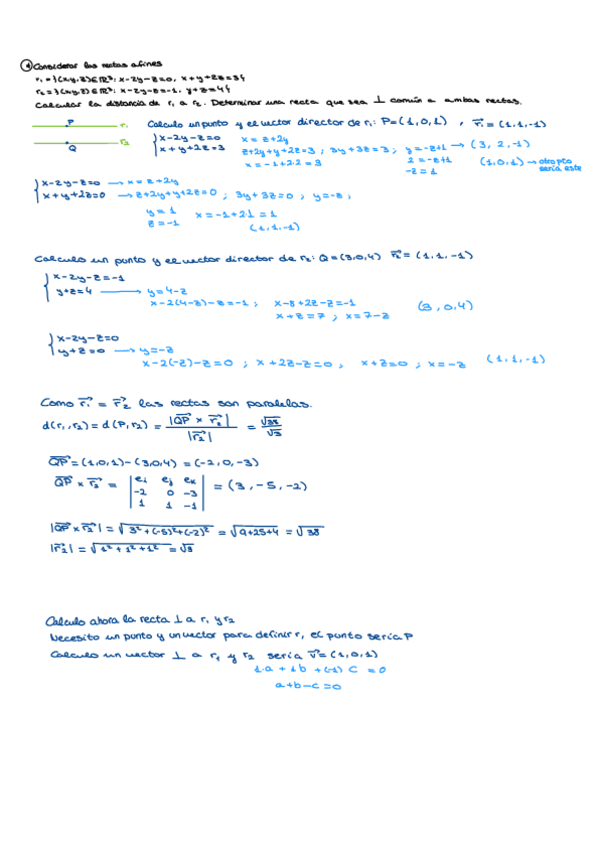 ④ Considerar las rectas afines
r₁ = {(x,y,z)∈ℝ³: x-2y-z=0, x+y+2z=3}
r₂ = {(x,y,z)∈ℝ³: x-2y-z=-1, y+z=4}
Calcular la distancia de r₁ a r₂. Determinar una recta que sea ⊥ común a ambas rectas.
P r₁
Q r₂
Calculo un punto y el vector director de r₁: P=(1,0,1) , r₁ = (1,1,-1)
x-2y-z=0 x = z+2y
x+y+2z=3 z+2y+y+2z=3 ; 3y+3z=3 ; y=-z+1 → (3, 2, -1)
x = -1+2·2 = 3 2 = -z+1 (1,0,1) → otro pto sería este
-z = 1
x-2y-z=0 → x=z+2y
x+y+2z=0 → z+2y+y+2z=0 ; 3y+3z=0 ; y=-z ;
y = 1 x = -1+2·1 = 1
z = -1 (1,1,-1)
Calculo un punto y el vector director de r₂: Q=(3,0,4) r₂ = (1,1,-1)
x-2y-z=-1
y+z=4 → y=4-z
x-2(4-z)-z=-1 ; x-8+2z-z=-1 (3,0,4)
x+z=7 ; x=7-z
x-2y-z=0
y+z=0 → y=-z
x-2(-z)-z=0 ; x+2z-z=0 ; x+z=0 ; x=-z (1,1,-1)
Como r₁ = r₂ las rectas son paralelas.
d(r₁,r₂) = d(P,r₂) = |QP × r₂| / |r₂| = √38 / √3
QP = (1,0,1)-(3,0,4) = (-2,0,-3)
QP × r₂ = | eᵢ eⱼ eₖ |
| -2 0 -3 | = (3, -5, -2)
| 1 1 -1 |
|QP × r₂| = √3²+(-5)²+(-2)² = √9+25+4 = √38
|r₂| = √1²+1²+1² = √3
Calculo ahora la recta ⊥ a r₁ y r₂
Necesito un punto y un vector para definir r, el punto sería P
Calculo un vector ⊥ a r₁ y r₂ sería v=(1,0,1)
1·a + 1·b + (-1) c = 0
a+b-c=0